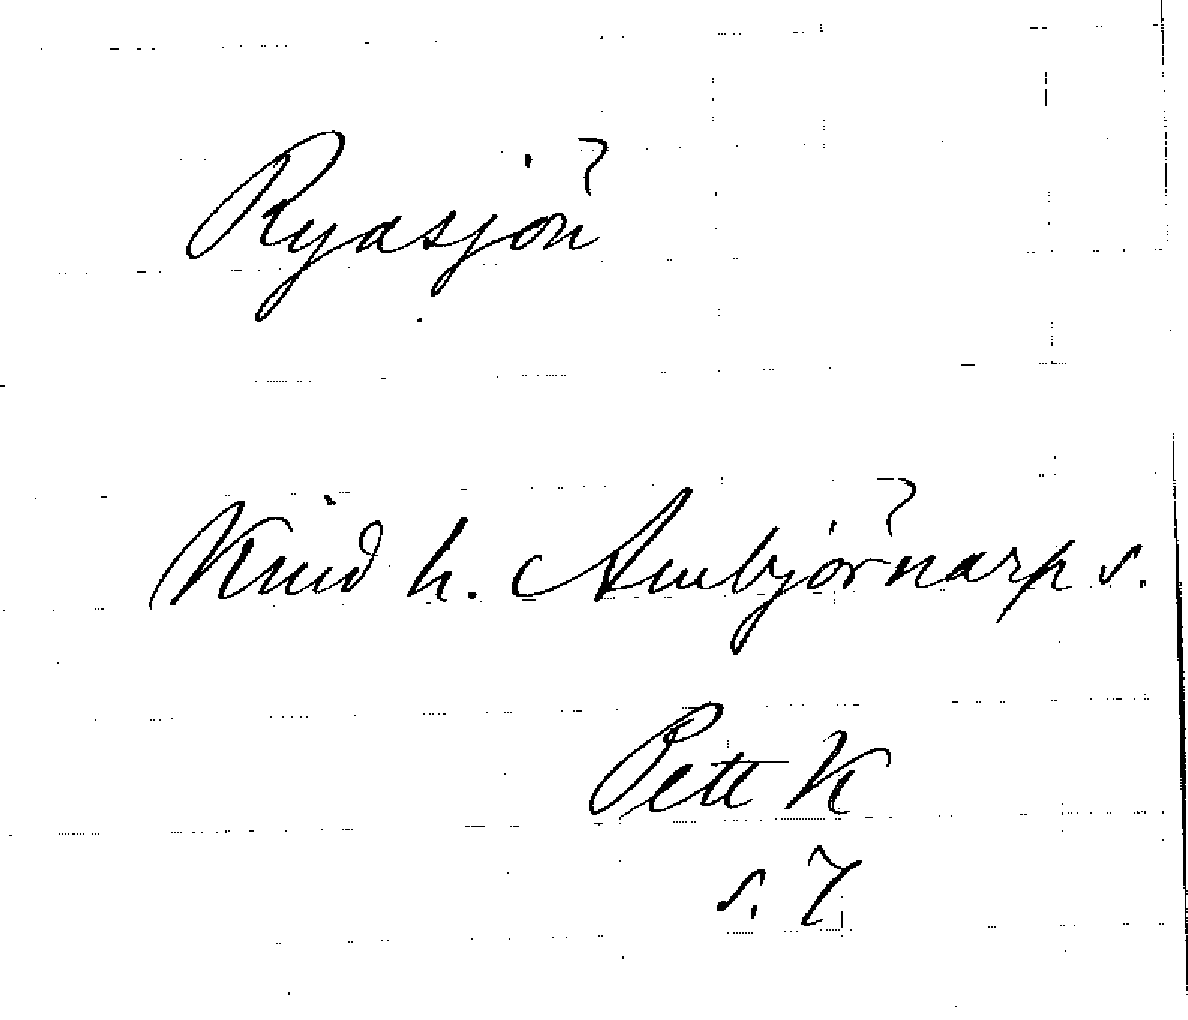 Ryasjön
Kind h. Ambjörnarp s.
Pett K
s. 7